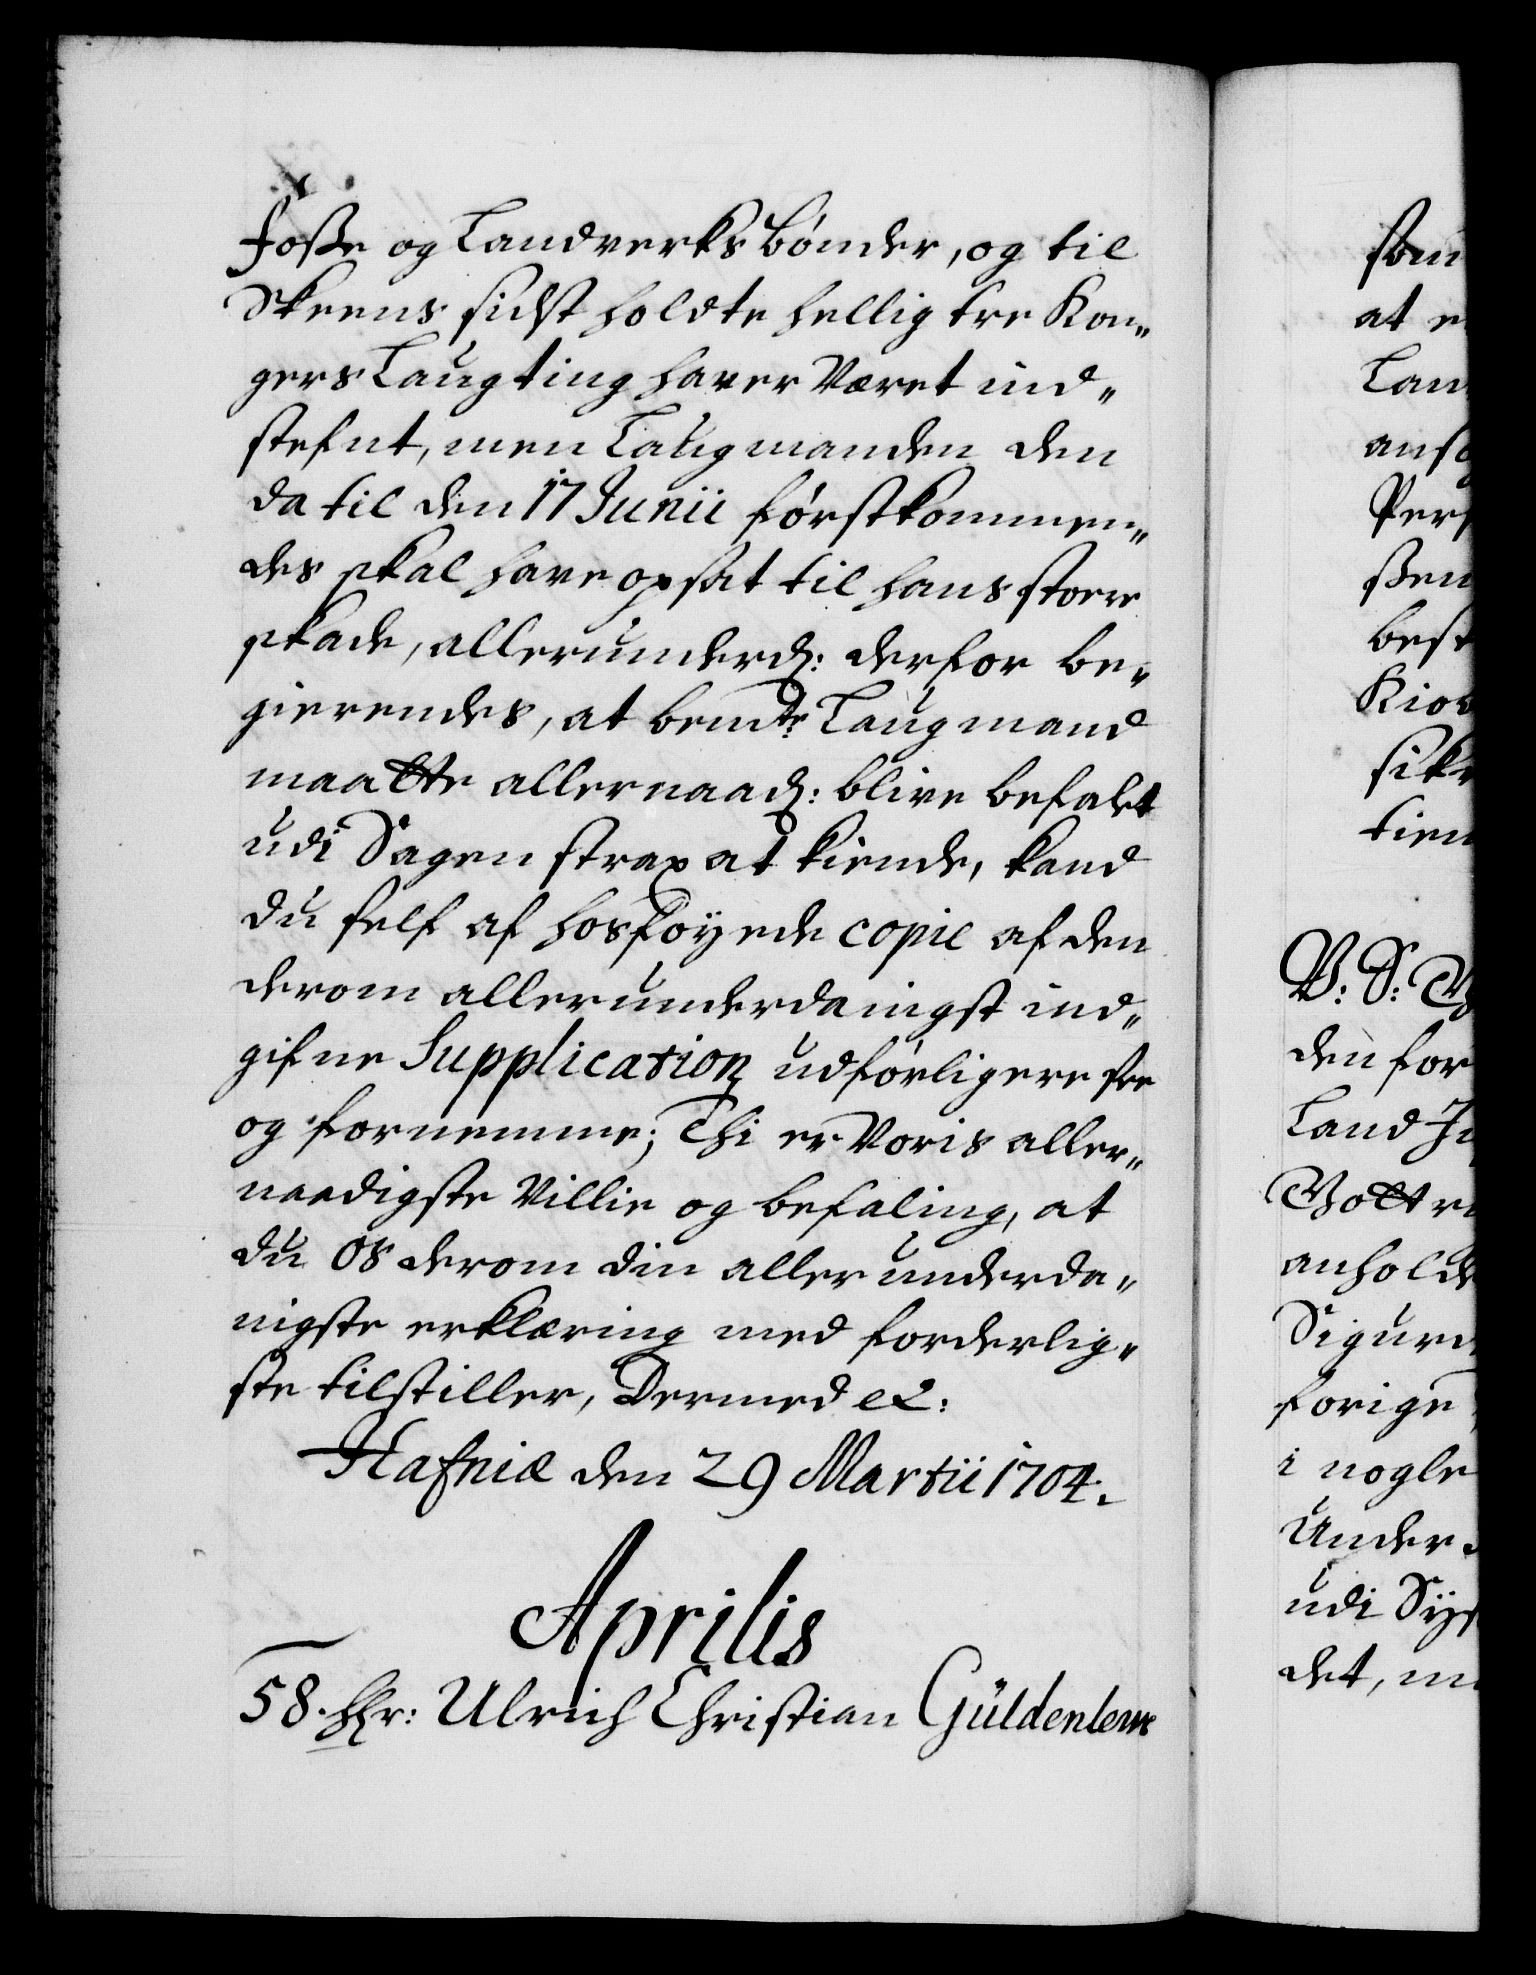 Fosse og Landverks bønder, og til
Skeens sidst holdte hellig tre Kon„
gers Laugting haver været ind„
stefnt, men Laugmanden den
da til den 17 Junii førstkommen„
des skal have opsat til hans stoere
skade, allerunderd: derfor be„
gierendes, at bemte Laugmand
maatte allernaad: blive befalet
udi Sagen strax at kiende, kand
du self af hosføyede copie af den
derom allerunderdaningst ind„
gifne Supplication udførligere see
og fornemme; Thi er Voris aller„
naadigste Villie og befaling, at
du Os derom din allerunderda„
nigste erklæring med forderlig„
ste tilstiller, Dermed ec:
Hafniæ den 29 Martii 1704.
Aprilis
58. Hr: Ulrich Christian Güldenlewe
at
Lan
Pers
ßen
best
Kiob
sikr
tien
V: S: V
den for
Land
anholde
Sigurd
forige
i nogle
Under
udi Sys
det, m